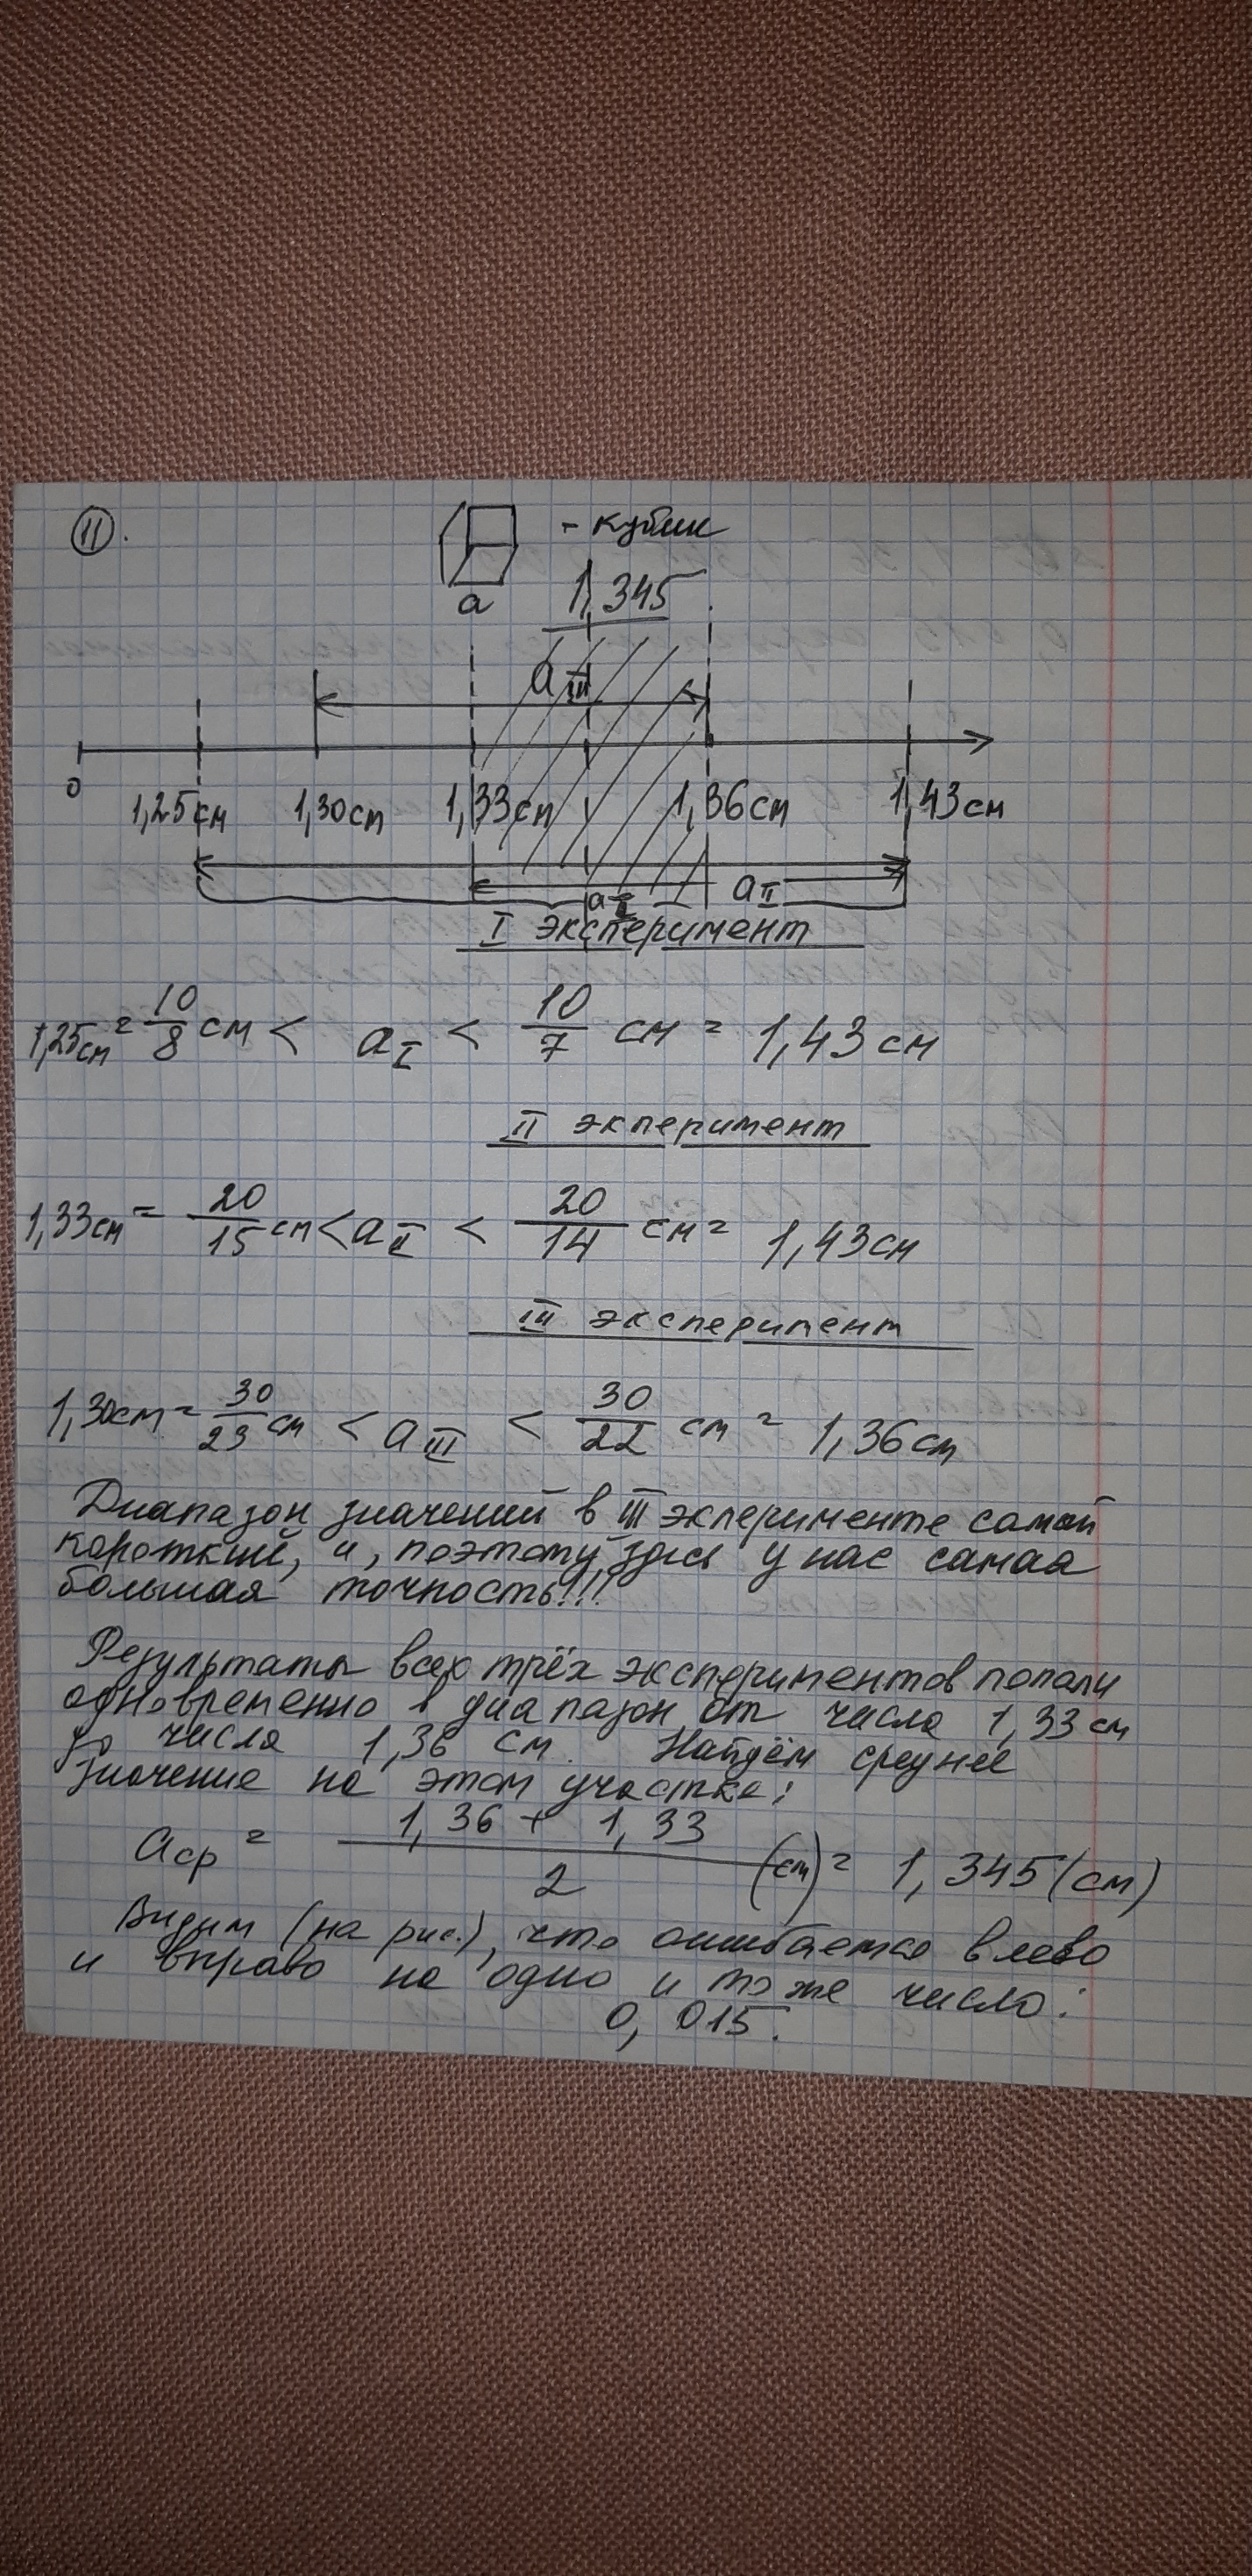 11.
- кубик
a
1,345
a III
0
1,25см 1,30см 1,33см 1,36см 1,43см
a I a II
I эксперимент
1,25см = 10/8 см < a I < 10/7 см = 1,43см
II экперимент
1,33см = 20/15 см < a II < 20/14 см = 1,43см
III эксперимент
1,30см = 30/23 см < a III < 30/22 см = 1,36см
Диапазон значений в III эксперименте самый
короткий, и, поэтому здесь у нас самая
большая точность!!!
Результаты всех трёх экспериментов попали
одновременно в диапазон от числа 1,33см
до числа 1,36 см. Найдём среднее
значение на этом участке:
aср = (1,36 + 1,33)/2 (см) = 1,345(см)
Видим (на рис.), что ошибается влево
и вправо на одно и то же число:
0,015.